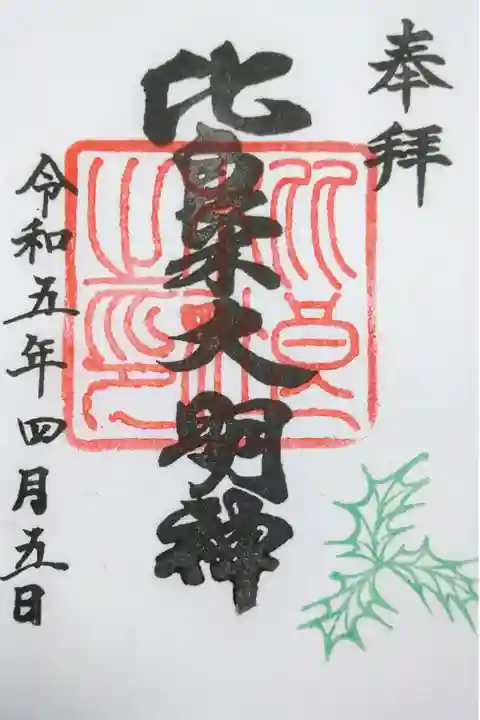 奉拝
比良木大明神
令和五年四月五日